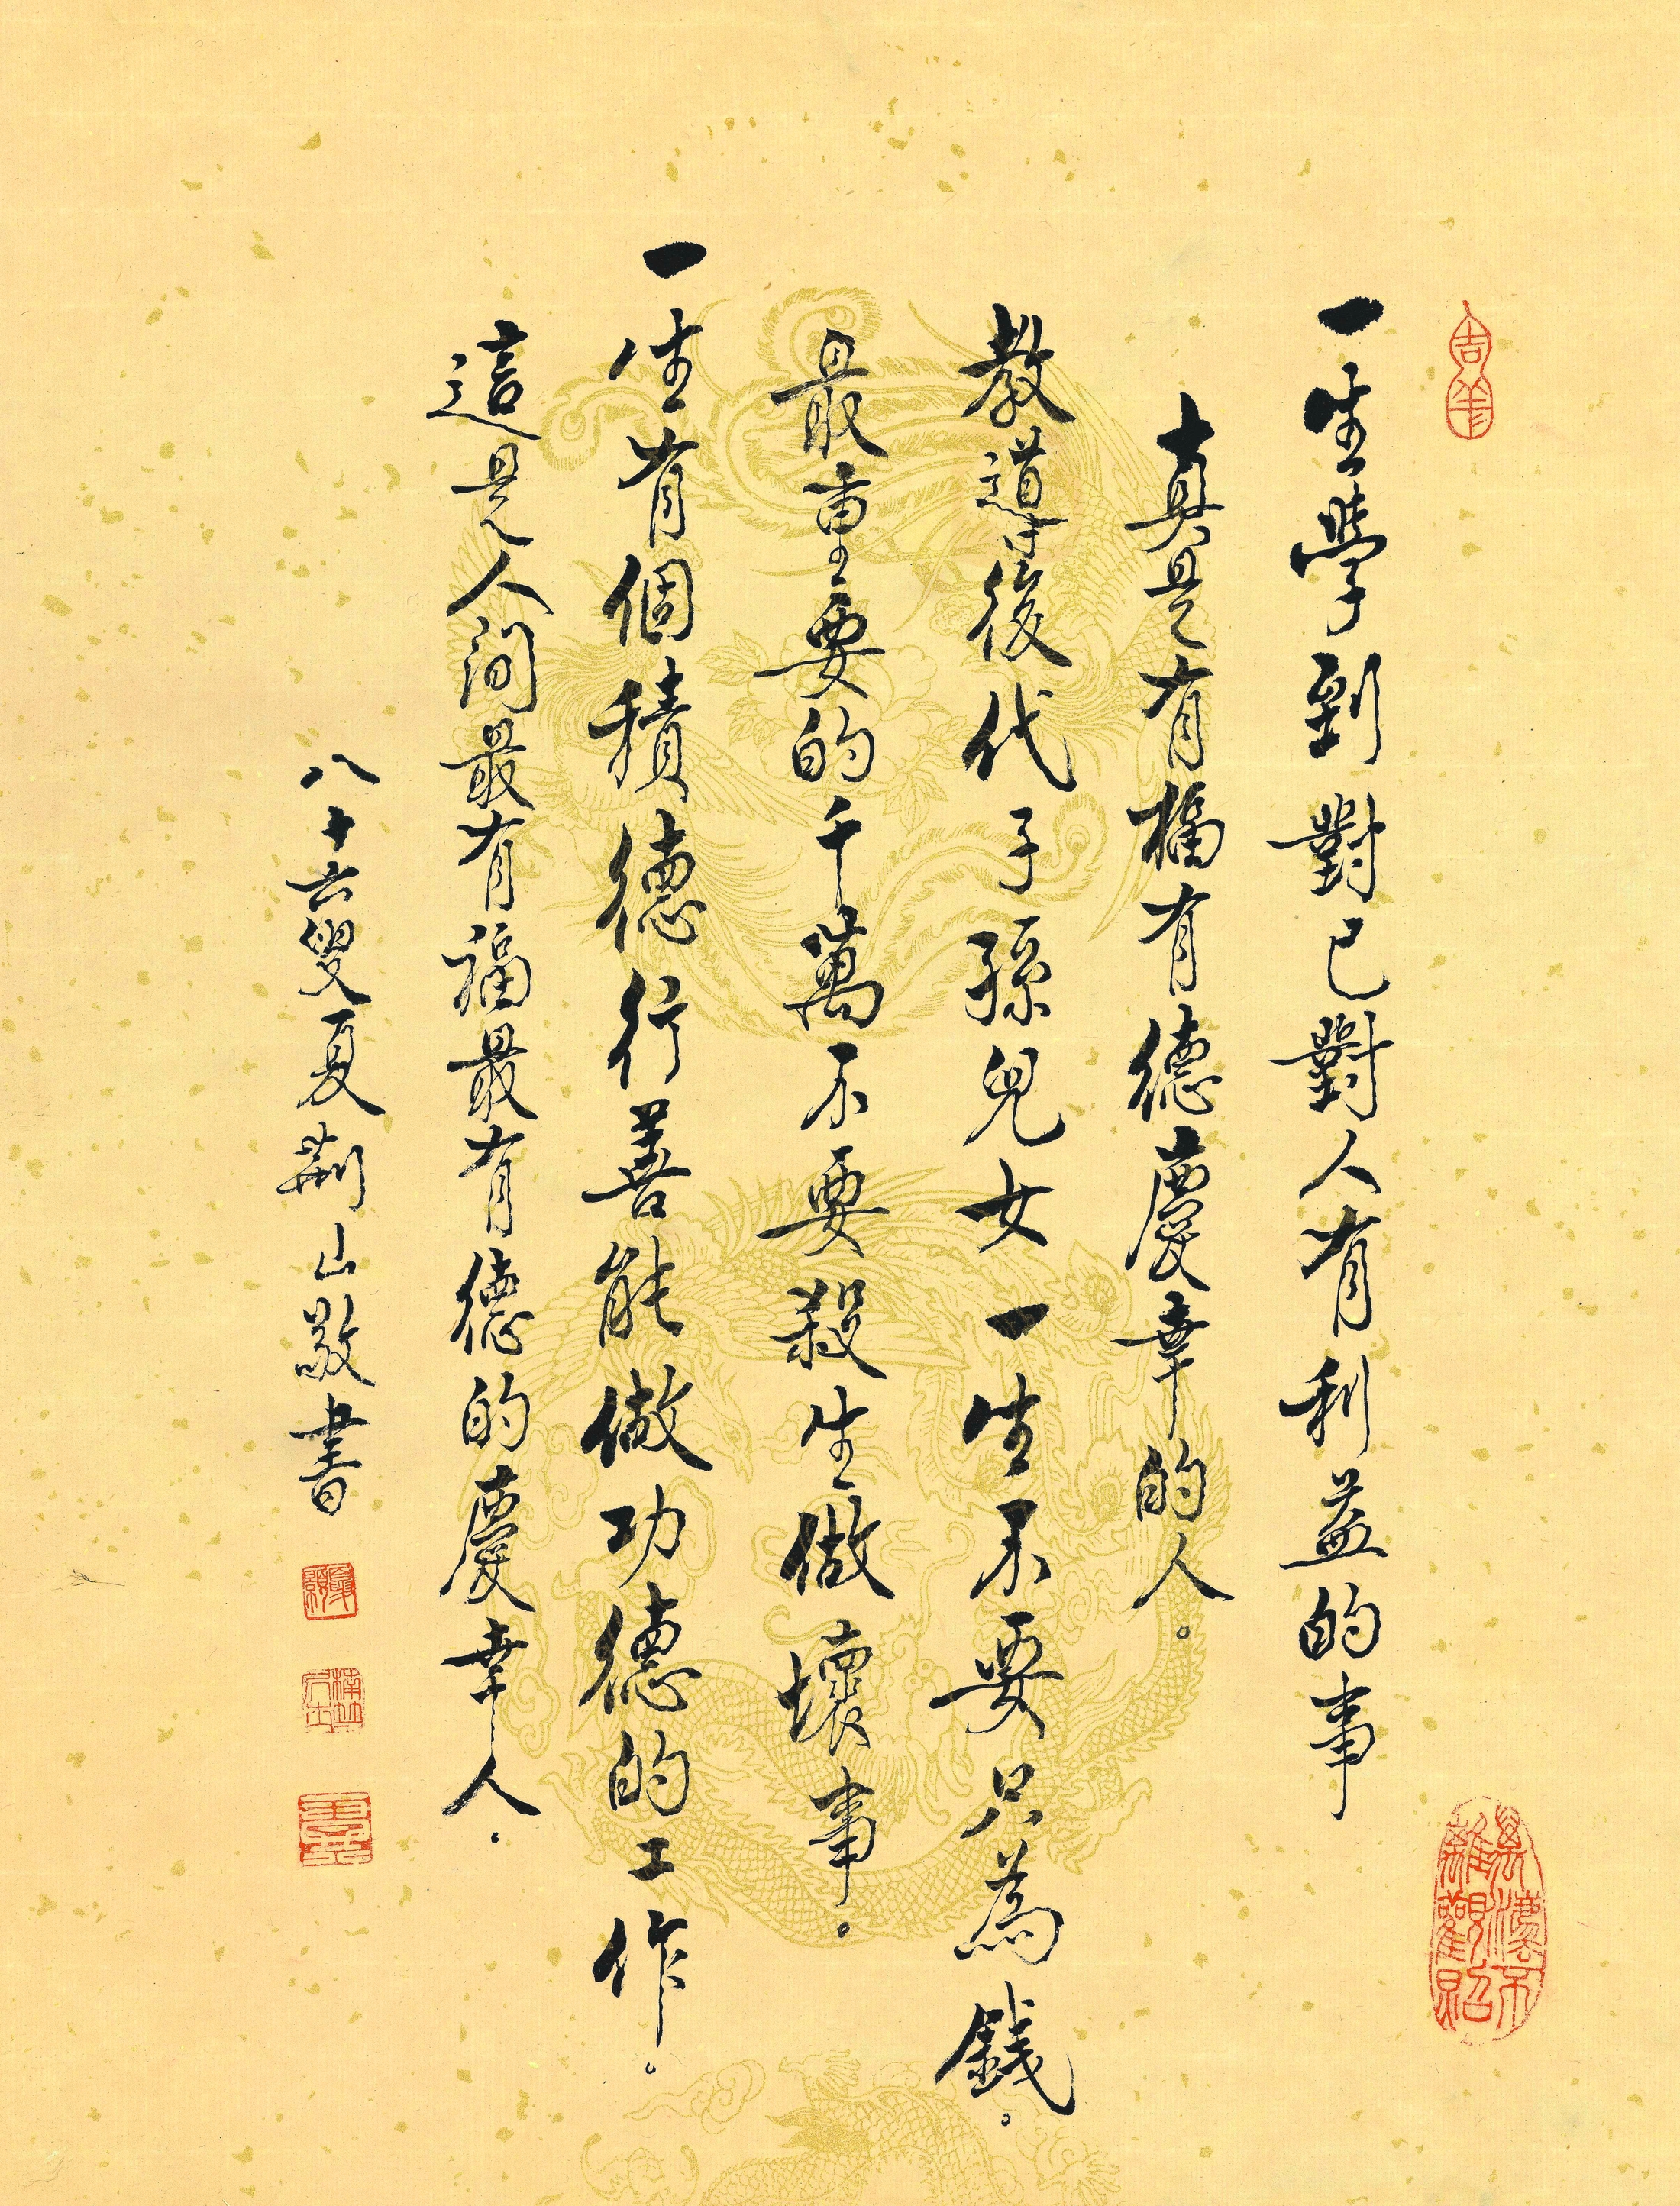 一生學到對己對人有利益的事
真是有福有德慶幸的人。
教導後代子孫兒女一生不要只為錢。
最重要的千萬不要殺生做壞事。
一生有個積德行善能做功德的工作。
這是人间最有福最有德的慶幸人。
八十六叟夏荊山敬書